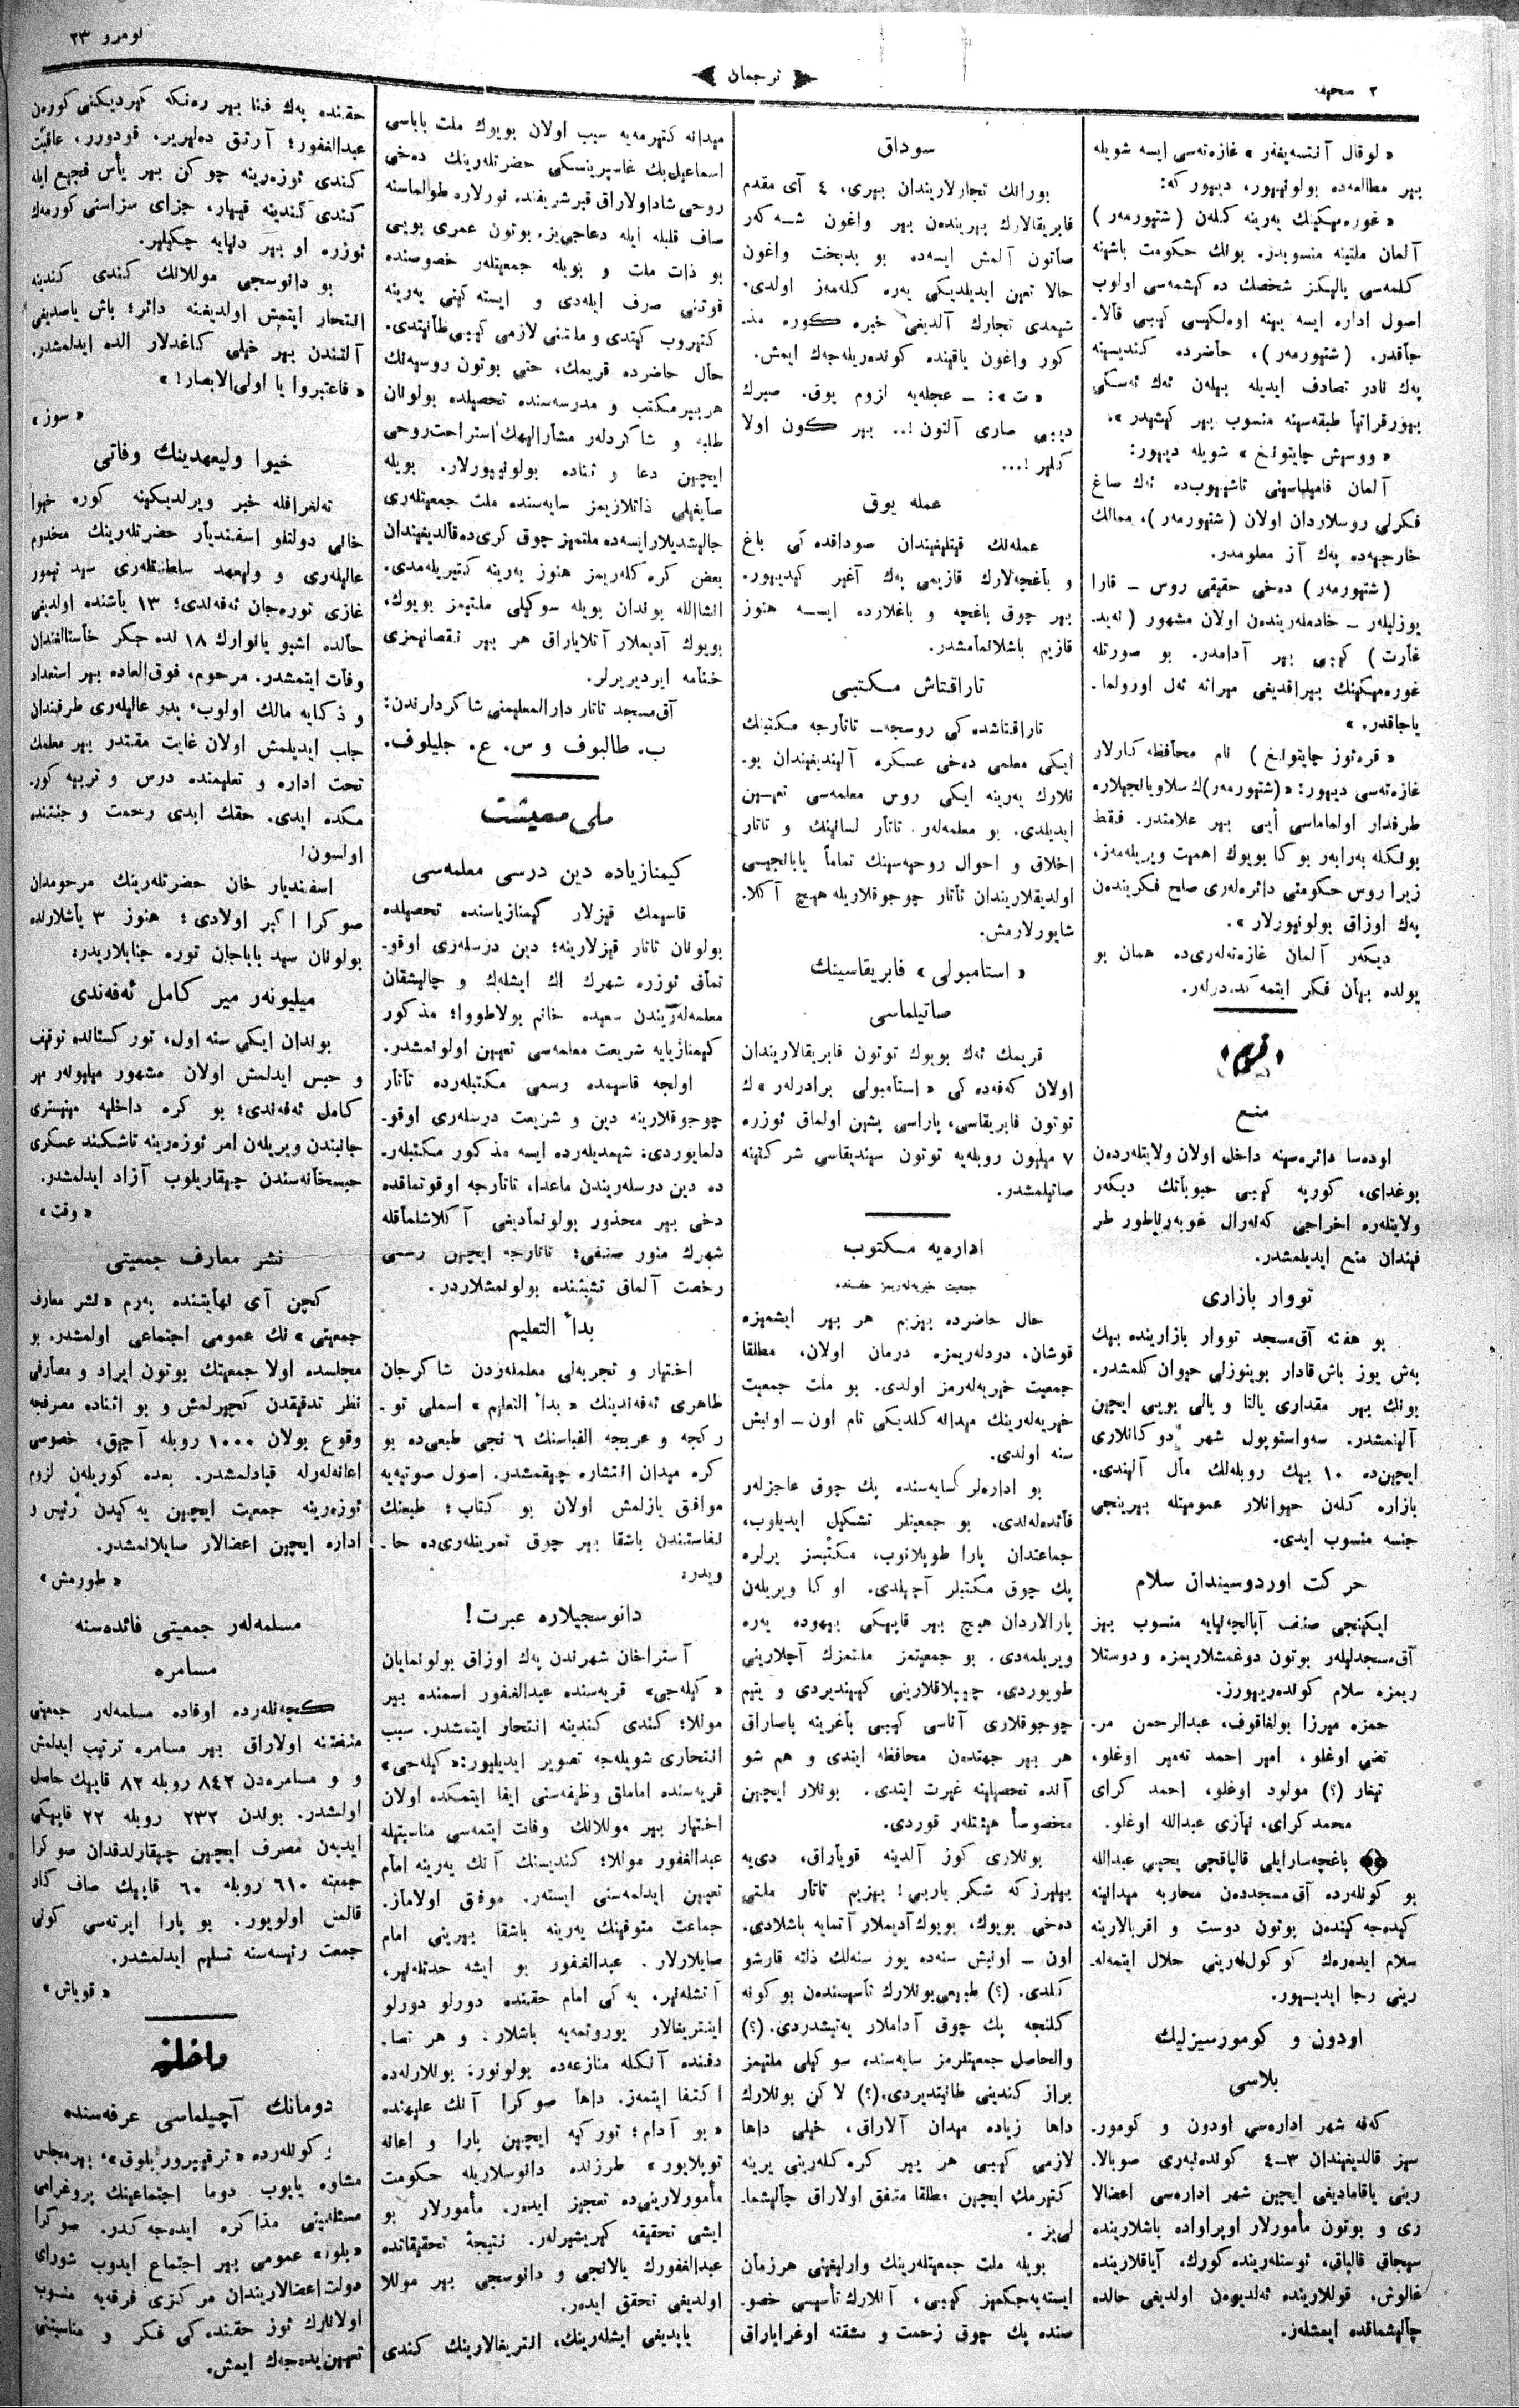 ۲ صحیفه
ترجمان
نومرو ۲۳
« لوقال آنتسه‌یغەر » غازه‌ته‌سی ایسه شویله
بیر مطالعه‌ده بولونیور، دییور که:
« غوره‌میکینك یەرینه کلەن ( شتیورمەر )
آلمان ملتینه منسوبدر. بونك حکومت باشینه
کلمه‌سی یالیکز شخصك ده کیشمه‌سی اولوب
اصول اداره ایسه یینه اوه‌لکیسی کیبی قالا-
جاقدر. ( شتیورمەر )، حاضرده کندیسینه
پەك نادر تصادف ایدیله بیلەن ئەك ئەسکی
بیورقراتیا طبقه‌سینه منسوب بیر کیشیدر ».
« ووسیش چایتونغ » شویله دییور:
آلمان فامیلیاسینی تاشییوب‌ده ئەك صاغ
فکرلی روسلاردان اولان ( شتیورمەر )، ممالك
خارجیه‌ده پەك آز معلومدر.
( شتیورمەر ) دخی حقیقی روس ــ قارا
یوزلیلەر ــ خادملەریندەن اولان مشهور ( نەید-
غارت ) کیبی بیر آدامدر. بو صورتله
غوره‌میکینك بیراقدیغی میرانه ئەل اوزولما-
یاجاقدر. »
« قره‌ئوز چایتونغ ) نام محافظه کارلار
غازه‌ته‌سی دییور: « (شتیورمەر)ك سلاویانجیلاره
طرفدار اولماماسی أیی بیر علامتدر. فقط
بونکله بەرابەر بوکا بویوك اهمیت ویریلەمەز،
زیرا روس حکومتی دائره‌لەری صلح فکریندەن
پەك اوزاق بولونیورلار ».
دیکەر آلمان غازه‌ته‌لەری‌ده همان بو
یولده بیان فکر ایتمه‌کده‌درلەر.
قریم
منع
اوده‌سا دائره‌سینه داخل اولان ولایتلەردەن
بوغدای، کورپه کیبی حبوباتك دیکەر
ولایتلەره اخراجی کەنەرال غوبەرناطور طر
فیندان منع ایدیلمشدر.
تووار بازاری
بو هفته آق‌مسجد تووار بازارینده بیك
بەش یوز باش قادار بوینوزلی حیوان کلمشدر.
بونك بیر مقداری یالتا و یالی بویی ایچین
آلینمشدر. سەواستوپول شهر دوکانلاری
ایچین‌ده ۱۰ بیك روبله‌لك مال آلیندی.
بازاره کلەن حیوانلار عمومیتله بیرینجی
جنسه منسوب ایدی.
حرکت اوردوسیندان سلام
ایکینجی صنف آپالچه‌نیایه منسوب بیز
آق‌مسجدلیلەر بوتون دوغمشلاریمزه و دوستلا
ریمزه سلام کوندەریورز.
حمزه میرزا بولغاقوف، عبدالرحمن مر-
تضی اوغلو، امیر احمد تەمیر اوغلو،
تیغار (؟) مولود اوغلو، احمد کرای
محمد کرای، نیازی عبدالله اوغلو.
باغچه‌سارایلی قالپاقجی یحیی عبدالله
بو کونلەرده آق‌مسجددەن محاربه میدانینه
کیده‌جەکیندەن بوتون دوست و اقربالارینه
سلام ایدەرەك کوکول‌لەرینی حلال ایتمەلە-
رینی رجا ایدییور.
اودون و کومورسیزلیك
بلاسی
کەفه شهر اداره‌سی اودون و کومور-
سیز قالدیغیندان ۳-۴ کوندەنبەری صوبالا-
رینی یاقامادیغی ایچین شهر اداره‌سی اعضالا
ری و بوتون مأمورلار اوپراواده باشلارینده
سیجاق قالپاق، ئوستلەرینده کورك، آیاقلارینده
غالوش، قوللارینده ئەلدیوەن اولدیغی حالده
چالیشماقده ایمشلەر.
سوداق
بورانك تجارلاریندان بیری، ٤ آی مقدم
فابریقالارك بیریندەن بیر واغون شـەکەر
صاتون آلمش ایسەده بو بدبخت واغون
حالا تعیین ایدیلدیکی یەره کلەمەز اولدی.
شیمدی تجارك آلدیغی خبره کوره مذ-
کور واغون یاقینده کوندەریلەجەك ایمش.
« ت »: ــ عجلەیه لزوم یوق. صبرك
دیبی صاری آلتون!.. بیر کون اولا
کلیر!...
عمله یوق
عملەلك قیتلیغیندان صوداقده‌کی باغ
و باغچه‌لارك قازیمی پەك آغیر کیدییور.
بیر چوق باغچه و باغلارده ایسـه هنوز
قازیم باشلانمامشدر.
تاراقتاش مکتبی
تاراقتاشده‌کی روسچه‌ــ تاتارجه مکتبنك
ایکی معلمی دخی عسکره آلیندیغیندان بو-
نلارك یەرینه ایکی روس معلمه‌سی تعیـین
ایدیلدی. بو معلمەلەر تاتار لسانینك و تاتار
اخلاق و احوال روحیه‌سینك تماماً یابانجیسی
اولدیقلاریندان تاتار چوجوقلاریله هیچ آکلا-
شایورلارمش.
« استامبولی » فابریقاسینك
صاتیلماسی
قریمك ئەك بویوك توتون فابریقالاریندان
اولان کەفه‌ده‌کی « استامبولی برادرلەر »ك
توتون فابریقاسی، پاراسی پشین اولماق ئوزره
۷ میلیون روبلەیه توتون سیندیقاسی شرکتینه
صاتیلمشدر.
اداره‌یه مکتوب
جمعیت خیریه‌لەریمز حقنده
حال حاضرده بیزم هر بیر ایشمیزه
قوشان، دردلەریمزه درمان اولان، مطلقا
جمعیت خیریه‌لەرمز اولدی. بو ملت جمعیت
خیریه‌لەرینك میدانه کلدیکی تام اون ــ اونبش
سنه اولدی.
بو اداره‌لر سایەسنده پك چوق عاجزلەر
فائده‌لەندی. بو جمعیتلر تشکیل ایدیلوب،
جماعتدان پارا طوپلانوب، مکتبسز یرلره
پك چوق مکتبلر آچیلدی. اوکا ویریلەن
پارالاردان هیچ بیر قاپیکی بیهوده یەره
ویریلمەدی. بو جمعیتمز ملتمزك آچلارینی
طویوردی. چیپلاقلارینی کییندیردی و یتیم
چوجوقلاری آناسی کیبی باغرینه باصاراق
هر بیر جهتدەن محافظه ایتدی و هم شو
آنده تحصیلینه غیرت ایتدی. بونلار ایچین
مخصوصاً هیئتلەر قوردی.
بونلاری کوز آلدینه قویاراق، دی‌یه
بیلیرزکه شکر یاربی! بیزیم تاتار ملتی
دخی بویوك، بویوك آدیملار آتمایه باشلادی.
اون ــ اونبش سنه‌ده یوز سنه‌لك ذلته قارشو
کلدی. (؟) طبیعی بونلارك تأسیسندەن بو کونه
کلنجه پك چوق آداملار یەتیشدردی. (؟)
والحاصل جمعیتلرمز سایەسنده سوکیلی ملتیمز
براز کندینی طانیتدیردی.(؟) لاکن بونلارك
داها زیاده میدان آلاراق، خیلی داها
لازمی کیبی هر بیر کره‌کلەرینی یرینه
کتیرمك ایچین مطلقا متفق اولاراق چالیشما-
لی‌یز.
بویله ملت جمعیتلەرینك وارلیغینی هرزمان
ایسته‌یەجکمیز کیبی، آنلارك تأسیسی خصو-
صنده پك چوق زحمت و مشقته اوغرایاراق
میدانه کتیرمه‌یه سبب اولان بویوك ملت باباسی
اسماعیل‌بك غاسپرینسکی حضرتلەرینك دخی
روحی شاداولاراق قبرشریفنده نورلاره طولماسنه
صاف قلبله ایله دعاجی‌یز. بوتون عمری بویی
بو ذات ملت و بویله جمعیتلەر خصوصنده
قوتنی صرف ایلەدی و ایسته‌کینی یەرینه
کتیروب کیتدی و ملتنی لازمی کیبی طانیتدی.
حال حاضرده قریمك، حتی بوتون روسیه‌نك
هربیرمکتب و مدرسه‌سنده تحصیلده بولونان
طلبه و شاکردلەر مشارالیهك استراحت‌روحی
ایچین دعا و ثناده بولونییورلار. بویله
صایغیلی ذاتلاریمز سایەسنده ملت جمعیتلەری
چالیشدیلارایسه‌ده ملتمیز چوق کری‌ده قالدیغیندان
بعض کره‌کلەریمز هنوز یەرینه کتیریلەمدی.
انشاالله بوندان بویله سوکیلی ملتیمز بویوك،
بویوك آدیملار آتلایاراق هر بیر نقصانیمزی
ختامه ایردیریرلر.
آق‌مسجد تاتار دارالمعلیمنی شاکردلرندن:
ب. طالبوف و س. ع. جلیلوف.
ملی معیشت
کیمنازیاده دین درسی معلمه‌سی
قاسیمك قیزلار کیمنازیاسنده تحصیلده
بولونان تاتار قیزلارینه؛ دین درسلەری اوقو-
تماق ئوزره شهرك اك ایشلەك و چالیشقان
معلمەلەریندن سعیده خانم بولاطووا؛ مذکور
کیمنازیایه شریعت معلمه‌سی تعیین اولونمشدر.
اولجه قاسیمده رسمی مکتبلەرده تاتار
چوجوقلارینه دین و شریعت درسلەری اوقو-
دلمایوردی؛ شیمدیلەرده ایسه مذکور مکتبلەر-
ده دین درسلەریندن ماعدا، تاتارجه اوقوتماقده
دخی بیر محذور بولونمادیغی آکلاشلماقله
شهرك منور صنفی؛ تاتارجه ایچین رسمی
رخصت آلماق تشبثنده بولونمشلاردر.
بدأ التعلیم
اختیار و تجربه‌لی معلملەردن شاکرجان
طاهری ئەفەندینك « بدأ التعلیم » اسملی تو-
رکجه و عربجه الفباسنك ٦ نجی طبعی‌ده بو
کره میدان انتشاره چیقمشدر. اصول صوتیه‌یه
موافق یازلمش اولان بو کتاب؛ طبعنك
نفاستندن باشقا بیر چوق تمرینلەری‌ده حا-
ویدر.
دانوسجیلاره عبرت!
آستراخان شهرندن پەك اوزاق بولونمایان
« کیله‌جی » قریه‌سنده عبدالغفور اسمنده بیر
موللا؛ کندی کندینه انتحار ایتمشدر. سبب
انتحاری شویلەجه تصویر ایدیلیور: « کیله‌جی »
قریه‌سنده اماملق وظیفه‌سنی ایفا ایتمکده اولان
اختیار بیر موللانك وفات ایتمه‌سی مناسبتیله
عبدالغفور موللا؛ کندیسنك آنك یەرینه امام
تعیین ایدلمه‌سنی ایستەر. موفق اولاماز.
جماعت متوفینك یەرینه باشقا بیرینی امام
صایلارلار. عبدالغفور بو ایشه حدتلەنیر،
آتشلەنیر، یەکی امام حقنده دورلو دورلو
اینتریغالار یوروتمه‌یه باشلار. و هر تصا-
دفنده آنکله منازعه‌ده بولونور. بونلارلەده
اکتفا ایتمەز. داها صوکرا آنك علیهنده
« بو آدام؛ تورکیه ایچین پارا و اعانه
توپلایور » طرزنده دانوسلاریله حکومت
مأمورلارینی‌ده تعجیز ایدەر. مأمورلار بو
ایشی تحقیقه کیریشیرلەر. نتیجهٔ تحقیقاتده
عبدالغفورك یالانجی و دانوسجی بیر موللا
اولدیغی تحقق ایدەر.
یاپدیغی ایشلەرینك، انتریغالارینك کندی
حقنده پەك فنا بیر رەنکه کیردیکنی کورەن
عبدالغفور؛ آرتق دەلیریر. قودورر، عاقبت
کندی ئوزەرینه چوکن بیر یأس فجیع ایله
کندی کندینه قییار، جزای سزاسنی کورمەك
ئوزره او بیر دنیایه چکیلیر.
بو دانوسجی موللانك کندی کندینه
انتحار ایتمش اولدیغینه دائر؛ باش یاصدیغی
آلتندن بیر خیلی کاغدلار الده ایدلمشدر.
« فاعتبروا یا اولی‌الابصار! »
« سوز »
خیوا ولیعهدینك وفاتی
تەلغرافله خبر ویرلدیکینه کوره خیوا
خانی دولتلو اسفندیار حضرتلەرینك مخدوم
عالیلەری و ولیعهد سلطنتلەری سید تیمور
غازی توره‌جان ئەفەندی؛ ۱۳ یاشنده اولدیغی
حالده اشبو یانوارك ۱۸ نده جکر خاستالغندان
وفات ایتمشدر. مرحوم، فوق‌العاده بیر استعداد
و ذکایه مالك اولوب، پدر عالیلەری طرفندان
جلب ایدیلمش اولان غایت مقتدر بیر معلمك
تحت اداره و تعلیمنده درس و تربیه کور-
مکده ایدی. حقك ابدی رحمت و جنتنده
اولسون!
اسفندیار خان حضرتلەرینك مرحومدان
صوکرا اکبر اولادی؛ هنوز ۳ یاشلارنده
بولونان سید باباجان توره جنابلاریدر.
میلیونەر میر کامل ئەفەندی
بوندان ایکی سنه اول، تورکستانده توقیف
و حبس ایدلمش اولان مشهور میلیونەر میر
کامل ئەفەندی؛ بو کره داخلیه مینیستری
جانبندن ویریلەن امر ئوزەرینه تاشکند عسکری
حبسخانه‌سندن چیقاریلوب آزاد ایدلمشدر.
« وقت »
نشر معارف جمعیتی
کچن آی نهایتنده پەرم « نشر معارف
جمعیتی » نك عمومی اجتماعی اولمشدر. بو
مجلسده اولا جمعیتك بوتون ایراد و مصارفی
نظر تدقیقدن کچیرلمش و بو اثناده مصرفجه
وقوع بولان ۱۰۰۰ روبله آچیق، خصوصی
اعانه‌لەرله قپادلمشدر. بعده کوریلەن لزوم
ئوزەرینه جمعیت ایچین یەکیدن رئیس و
اداره ایچین اعضالار صایلانمشدر.
« طورمش »
مسلمه‌لەر جمعیتی فائده‌سنه
مسامره
کچەنلەرده اوفاده مسلمه‌لەر جمعیتی
منفعتنه اولاراق بیر مسامره ترتیب ایدلمش
و و مسامره‌دن ۸٤۲ روبله ۸۲ قاپیك حاصل
اولمشدر. بوندن ۲۳۲ روبله ۲۲ قاپیکی
ایدیەن مصرف ایچین چیقارلدقدان صوکرا
جمعیته ٦۱۰ روبله ٦۰ قاپیك صاف کار
قالمش اولویور. بو پارا ایرته‌سی کونی
جمعیت رئیسه‌سنه تسلیم ایدلمشدر.
« قویاش »
داخلیه
دومانك آچیلماسی عرفه‌سنده
کونلەرده « ترقیپرور بلوق »، بیرمجلس
مشاوره یاپوب دوما اجتماعینك پروغرامی
مسئله‌سینی مذاکره ایده‌جەکدر. صوکرا
« بلوق » عمومی بیر اجتماع ایدوب شورای
دولت اعضالاریندان مرکزی فرقه‌یه منسوب
اولانلارك ئوز حقنده‌کی فکر و مناسبتنی
تعیین ایده‌جەك ایمش.